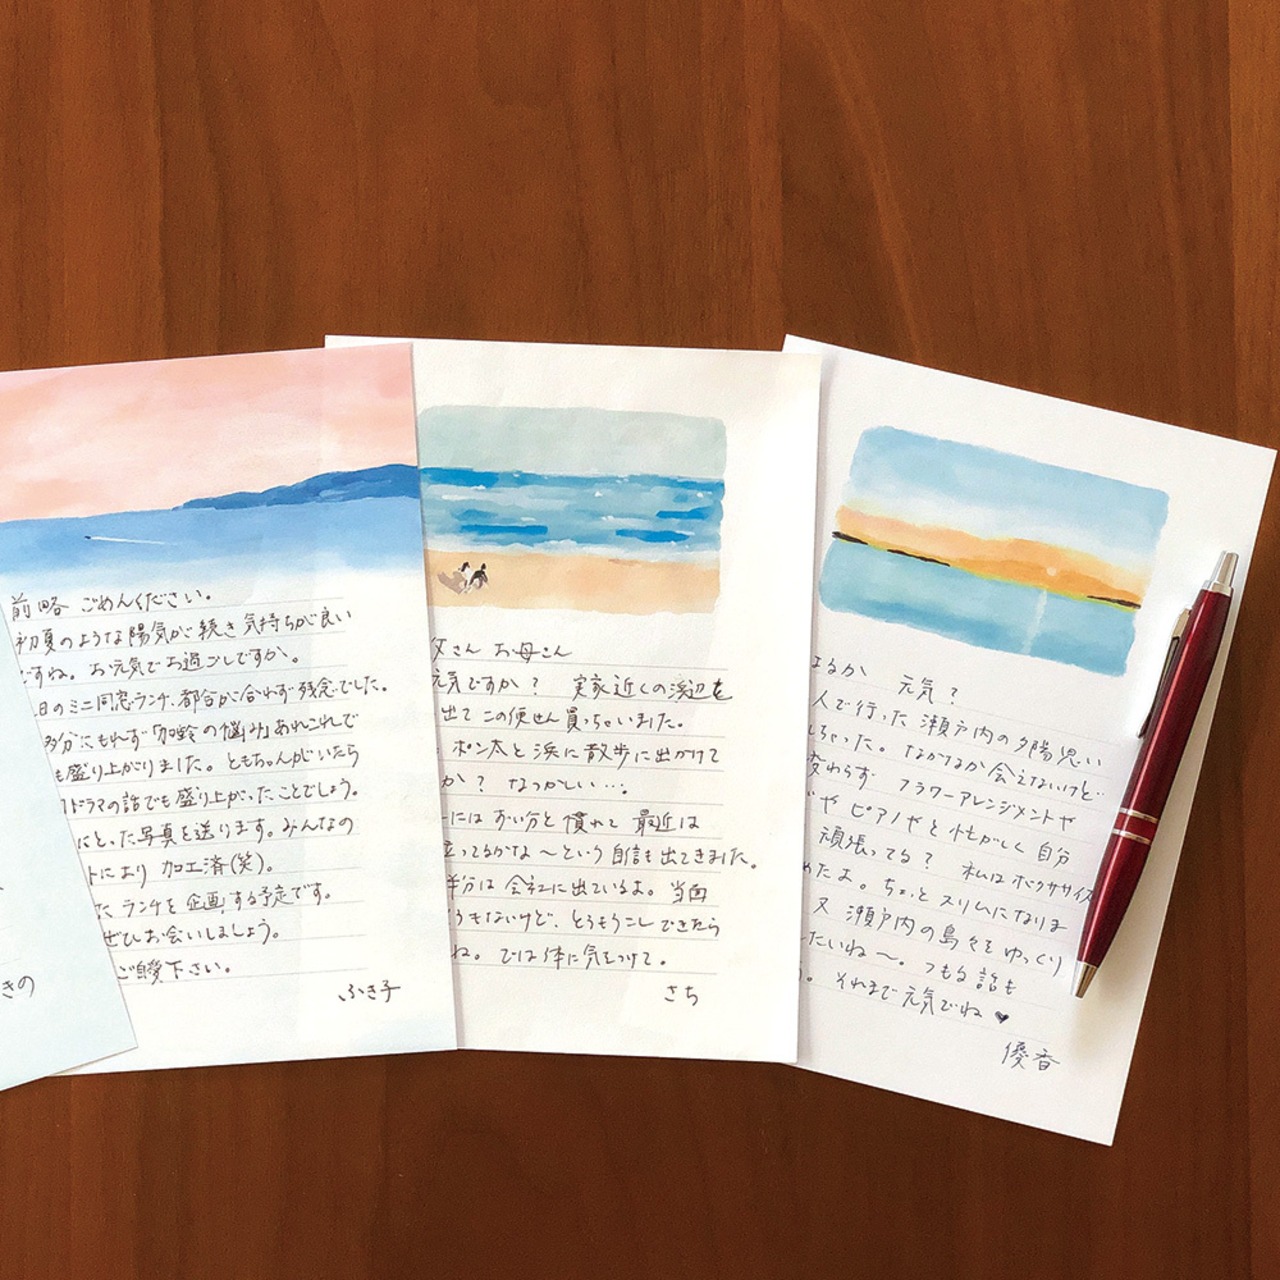 きの
前略 ごめんください。
初夏のような陽気が続き気持ちが良い
ですね。お元気でお過ごしですか。
日のミニ同窓ランチ、都合が合わず残念でした。
多分にもれず「加齢の悩み」あれこれで
も盛り上がりました。ともちゃんがいたら
ドラマの話でも盛り上がったことでしょう。
にとった写真を送ります。みんなの
トにより 加工済(笑)。
た ランチを企画する予定です。
ぜひお会いしましょう。
ご自愛下さい。
ふき子
父さん お母さん
元気ですか? 実家近くの浜辺を
出て この便せん買っちゃいました。
ポン太と浜に散歩に出かけて
か? なつかしい…。
には ずい分と慣れて 最近は
立ってるかな〜という自信も出てきました。
半分は会社に出ているよ。当面
うもないけど、とうもろこしできたら
ね。では体に気をつけて。
さち
はるか 元気?
人で行った 瀬戸内の夕陽思い
しちゃった。なかなか会えないけど
変わらず フラワーアレンジメントや
や ピアノやと忙がしく自分
頑張ってる? 私はボクササイズ
めたよ。ちょっとスリムになりま
又 瀬戸内の島々をゆっくり
したいね〜。つもる話も
。それまで元気でね♥
優香